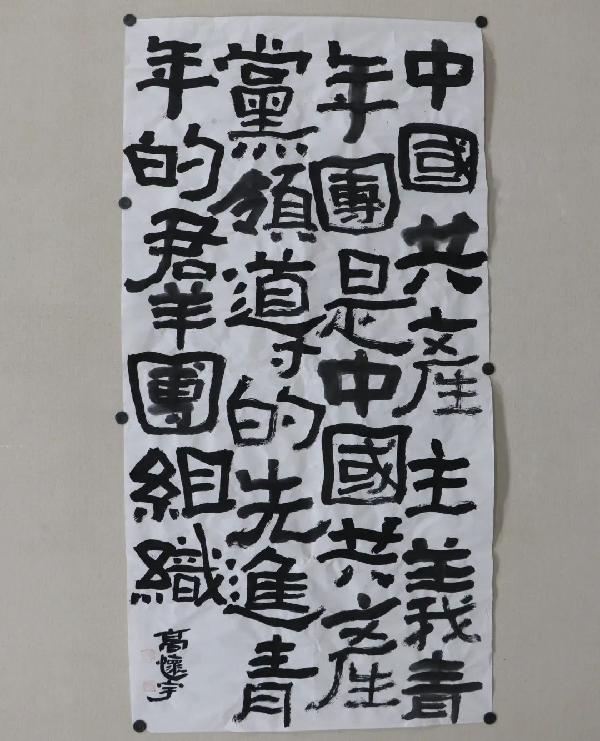 中國共産主義青
年團是中國共産
黨領導的先進青
年的羣團組織
高懷宇